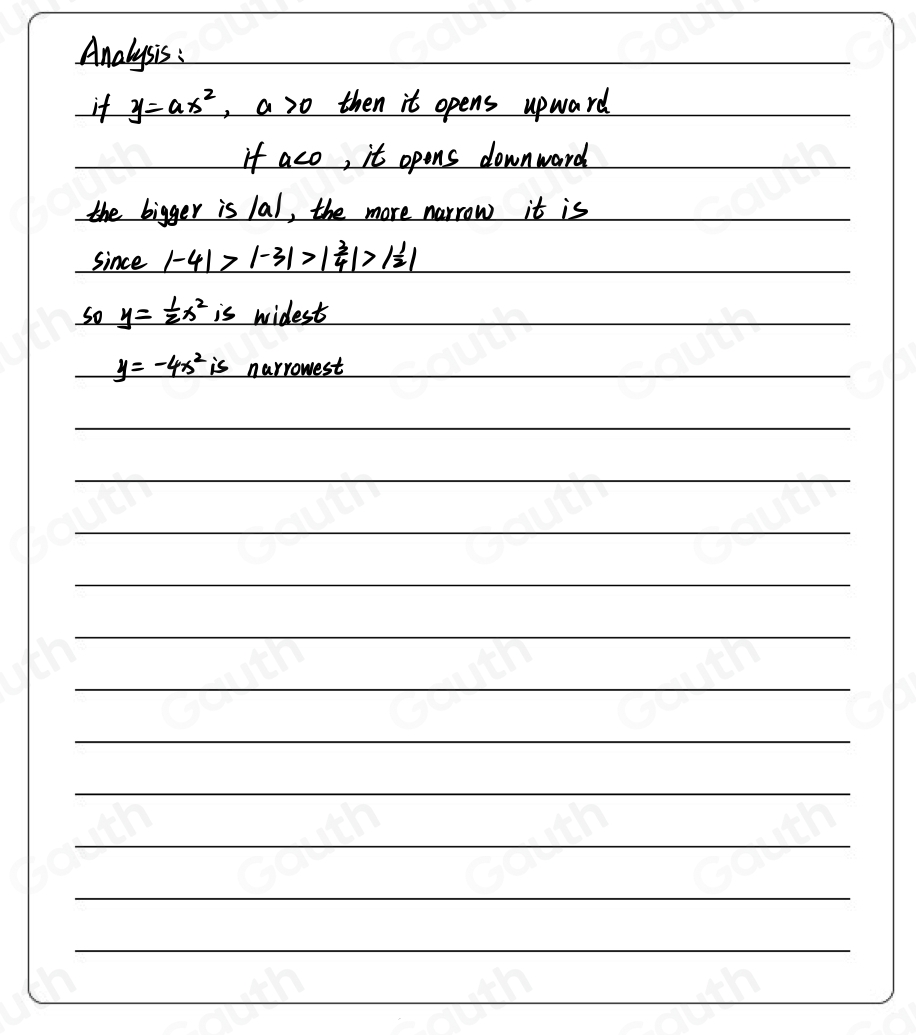 Analysis:
if y=ax², a>0 then it opens upward
if a<0, it opens downward
the bigger is |a|, the more narrow it is
since |-4| > |-3| > |3/4| > |1/2|
so y = 1/2x² is widest
y = -4x² is narrowest